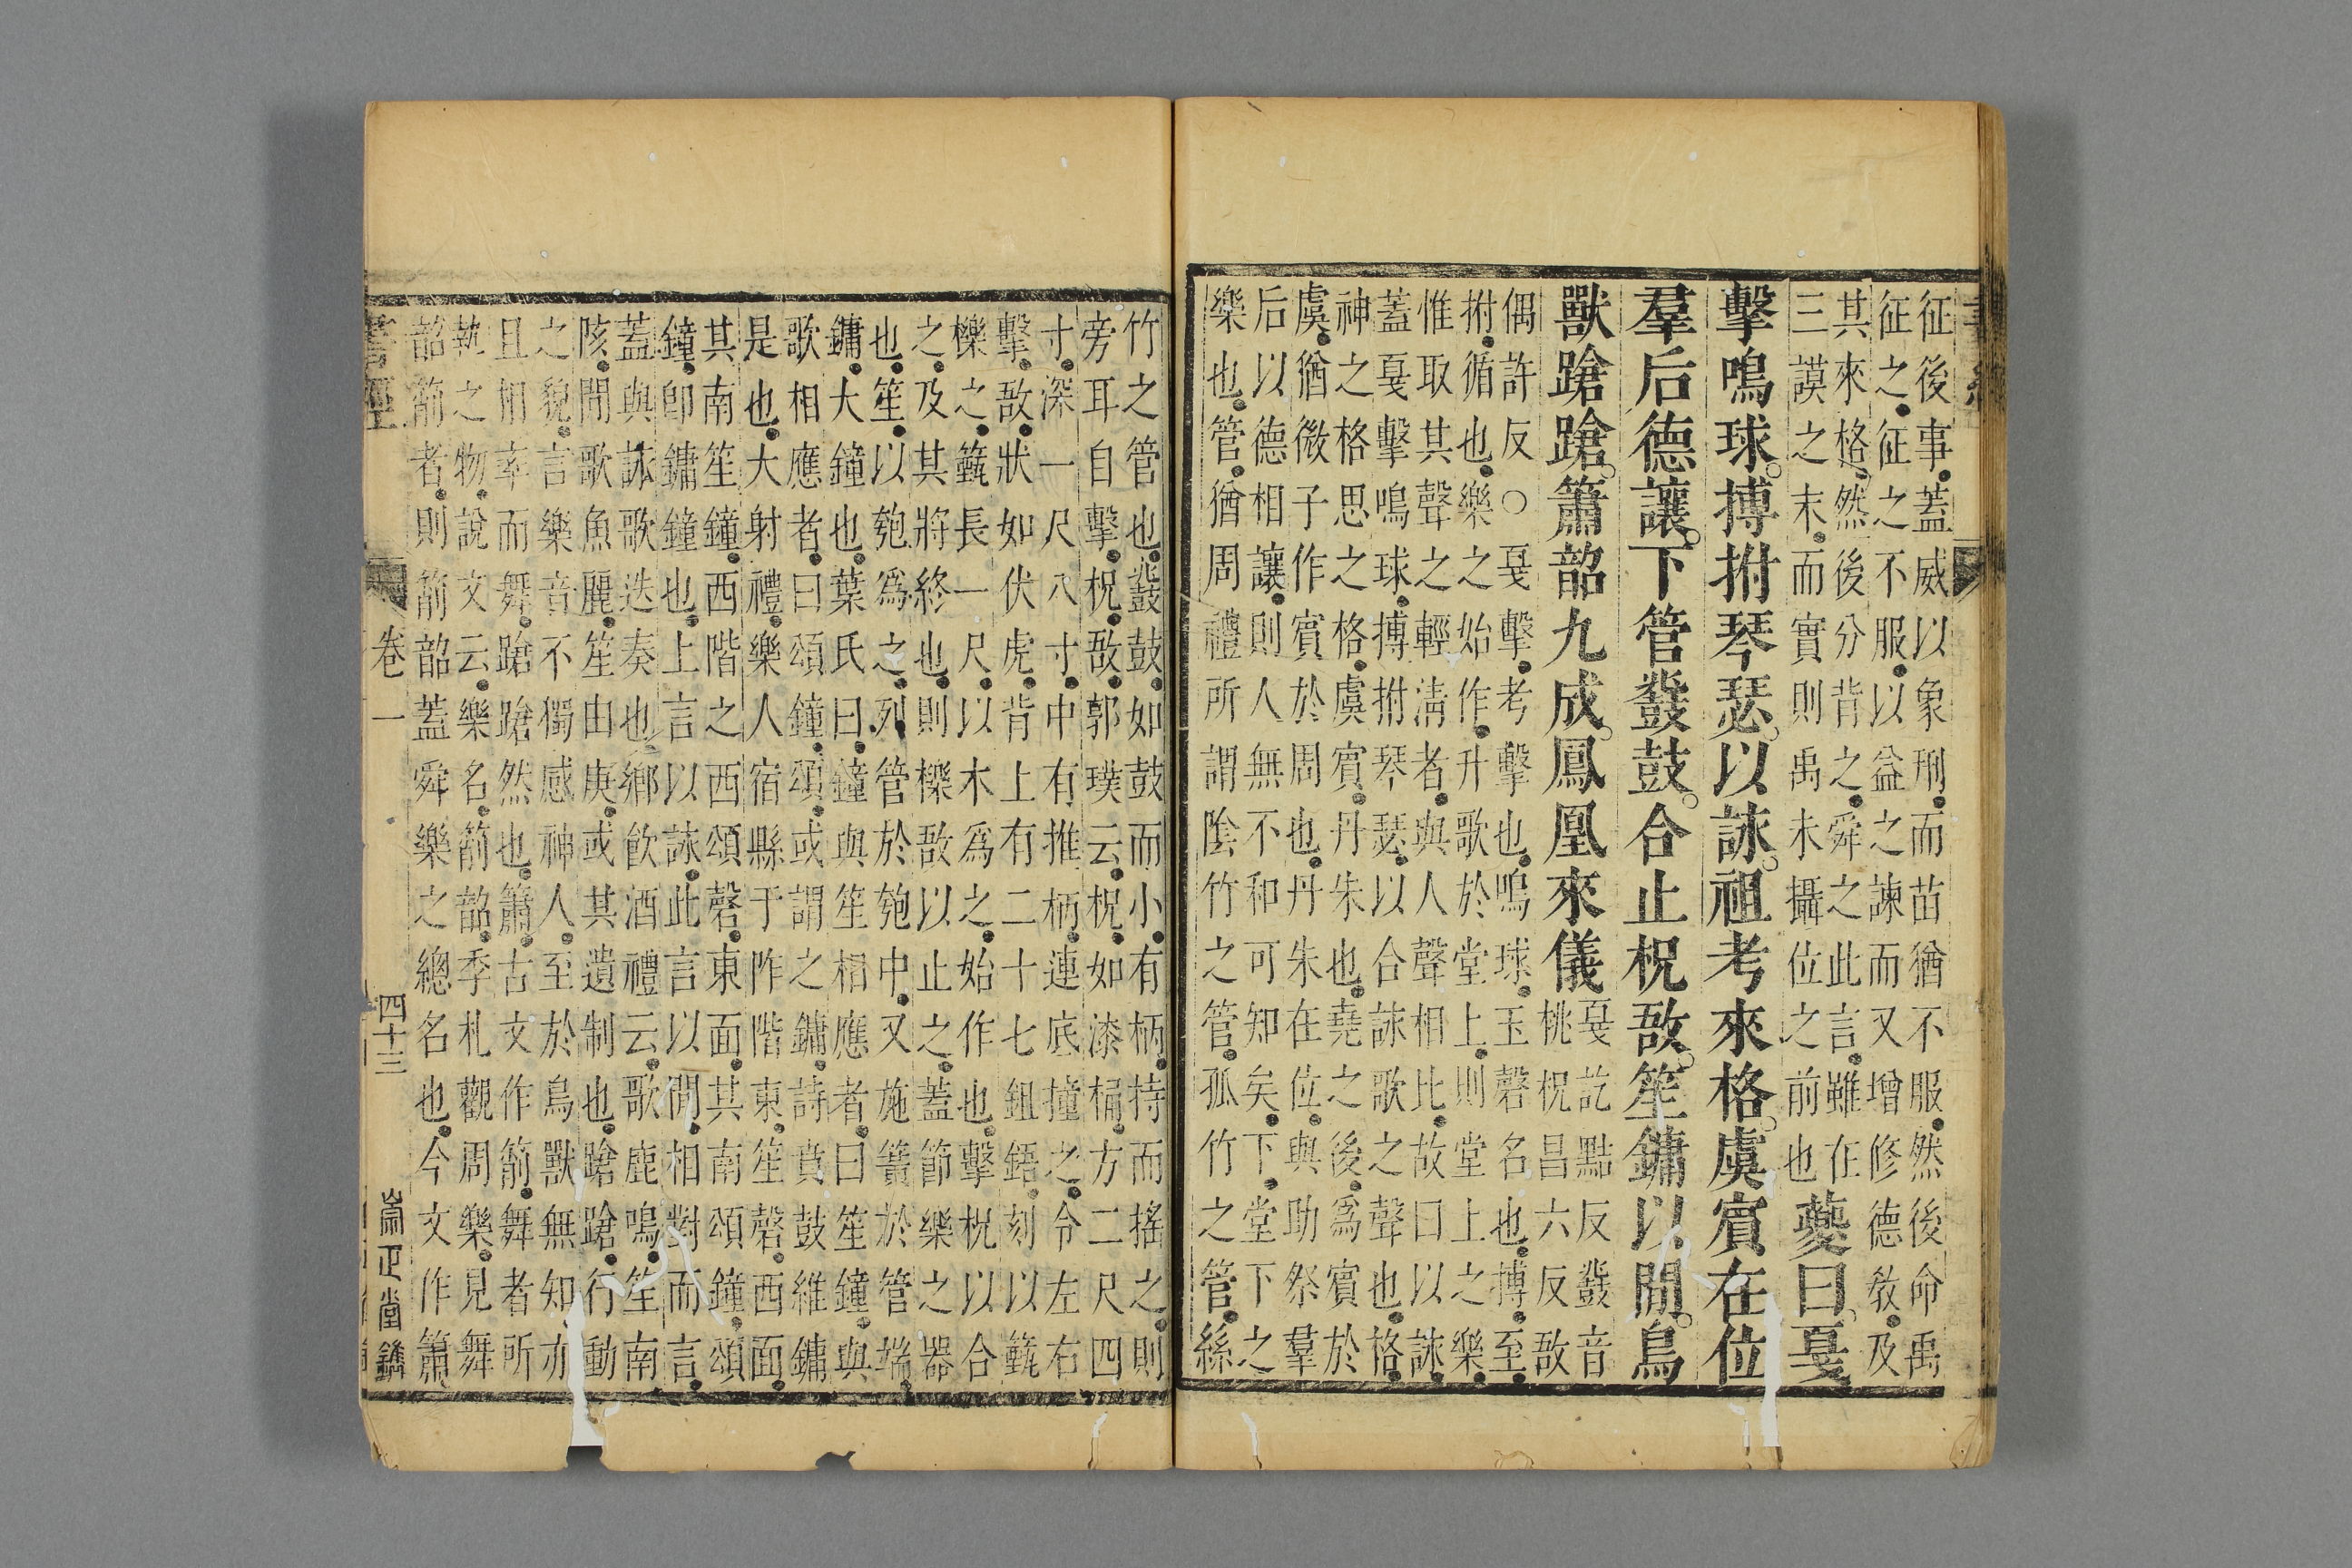 征後事蓋威以象刑而苗猶不服然後命禹
征之征之不服以益之諫而又增修德敎及
其來格然後分背之舜之此言雖在
三謨之末而實則禹未攝位之前也
夔曰戛
擊鳴球搏拊琴瑟以詠祖考來格虞賓在位
羣后德讓下管鼗鼓合止柷敔笙鏞以閒鳥
獸蹌蹌簫韶九成鳳凰來儀
戛訖黠反鼗音
桃柷昌六反敔
偶許反○戛擊考擊也鳴球玉磬名也搏至
拊循也樂之始作升歌於堂上則堂上之樂
惟取其聲之輕淸者與人聲相比故曰以詠
蓋戛擊鳴球搏拊琴瑟以合詠歌之聲也格
神之格思之格虞賓丹朱也堯之後爲賓於
虞猶微子作賓於周也丹朱在位與助祭羣
后以德相讓則人無不和可知矣下堂下之
樂也管猶周禮所謂陰竹之管孤竹之管絲
竹之管也鼗鼓如鼓而小有柄持而搖之則
旁耳自擊柷敔郭璞云柷如漆桶方二尺四
寸深一尺八寸中有推柄連底撞之令左右
擊敔狀如伏虎背上有二十七鉏鋙刻以籈
櫟之籈長一尺以木爲之始作也擊柷以合
之及其將終也則櫟敔以止之蓋節樂之器
也笙以匏爲之列管於匏中又施簧於管端
鏞大鐘也葉氏曰鐘與笙相應者曰笙鐘與
歌相應者曰頌鐘頌或謂之鏞詩賁鼓維鏞
是也大射禮樂人宿縣于阼階東笙磬西面
其南笙鐘西階之西頌磬東面其南頌鐘頌
鐘卽鏞鐘也上言以詠此言以閒相對而言
蓋與詠歌迭奏也鄉飮酒禮云歌鹿鳴笙南
陔閒歌魚麗笙由庚或其遺制也蹌蹌行動
之貌言樂音不獨感神人至於鳥獸無知亦
且相率而舞蹌蹌然也簫古文作箾舞者所
執之物說文云樂名箾韶季札觀周樂見舞
韶箾者則箾韶蓋舜樂之總名也今文作簫
書經
卷一
四十三
崇正堂鐫